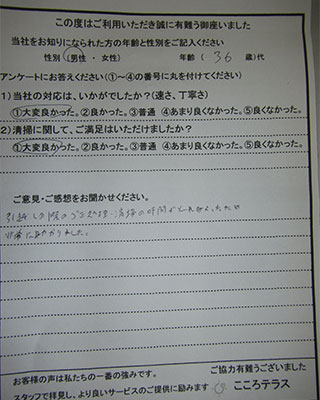 この度はご利用いただき誠に有難う御座いました
当社をお知りになられた方の年齢と性別をご記入ください
性別 (男性 ・ 女性) 年齢 ( 36 歳)代
アンケートにお答えください(①～④の番号に丸を付けてください)
1)当社の対応は、いかがでしたか?(速さ、丁寧さ)
①大変良かった。②良かった。③普通 ④あまり良くなかった。⑤良くなかった。
2)清掃に関して、ご満足はいただけましたか?
①大変良かった。②良かった。③普通 ④あまり良くなかった。⑤良くなかった。
ご意見・ご感想をお聞かせください。
引越しの際のゴミ処理・清掃の時間がとれなかったため
非常に助かりました。
お客様の声は私たちの一番の強みです。
スタッフで拝見し、より良いサービスのご提供に励みます
ご協力有難うございました
こころテラス